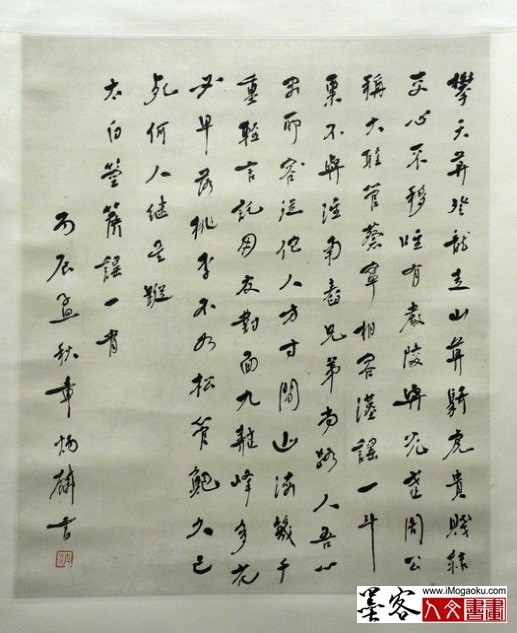 攀天莫登龍走山莫騎虎貴賤結
交心不移唯有嚴陵與光武周公
稱大聖管蔡寧相容漢謠一斗
粟不與淮南舂兄弟尚路人吾心
所容從他人方寸間山海幾千
重輕言託朋友對面九疑峰多花
必早落桃李不如松管鮑久已
死何人繼其蹤
太白箜篌謠一首
丙辰孟秋章炳麟書
墨客
www.iMogaoku.com
人文書畫